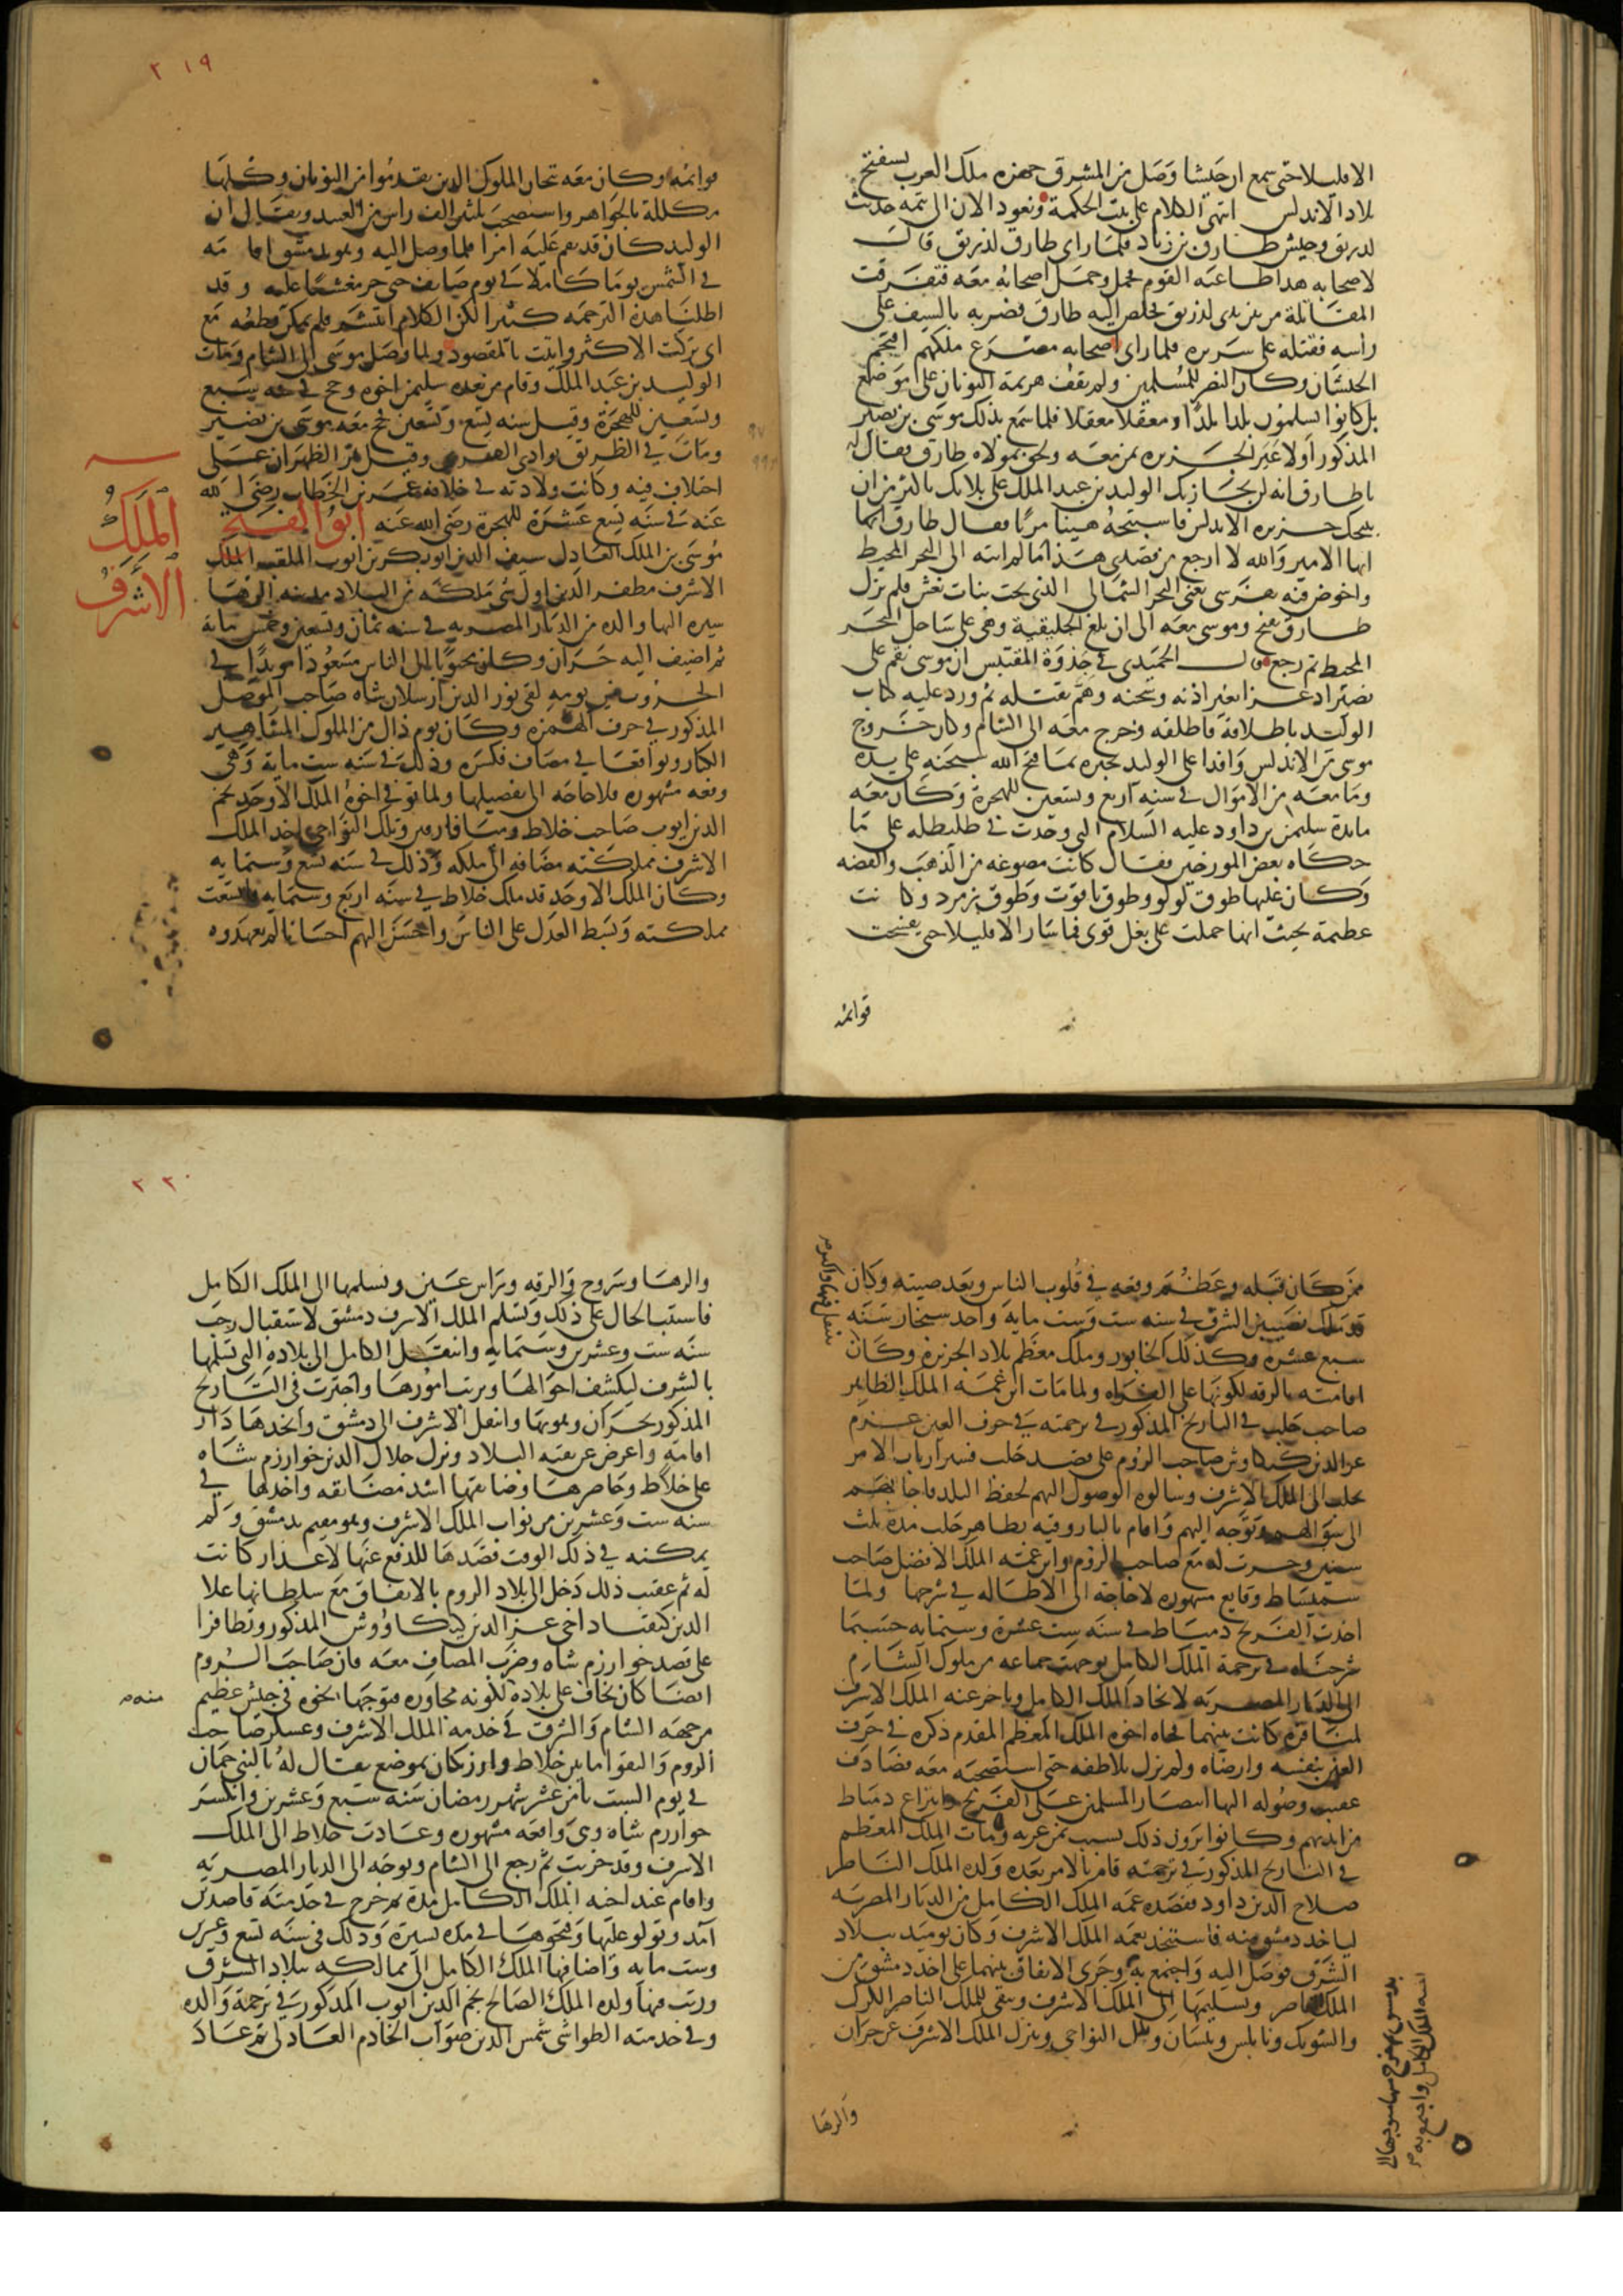 الاقليلا حتى سمع ان جيشا وصل من المشرق جهزه ملك العرب ليستفتح
بلاد الاندلس انتهى الكلام على بيت الحكمة ونعود الان الى تتمة حديث
لذريق وجيش طارق بن زياد فلما راى طارق لذريق قال
لاصحابه هذا طاغية القوم فحمل وحمل اصحابه معه فتفرقت
المقاتلة من بين يدى لذريق فخلص اليه طارق فضربه بالسيف على
راسه فقتله على سريره فلما راى اصحابه مصرع ملكهم اقتحم
الجيشان وكان النصر للمسلمين ولم تقف هزيمة اليونان على موضع
بل كانوا يسلمون بلدا بلدا ومعقلا معقلا فلما سمع بذلك موسى بن نصير
المذكور اولا عبر الجزيره بمن معه ولحق بمولاه طارق فقال له
يا طارق انه لن يجازيك الوليد بن عبد الملك على بلائك باكثر من ان
يبيحك جزيره الاندلس فاستبحه هنيئا مريا فقال طارق
ايها الامير والله لا ارجع من قصدى هذا ما لم انته الى البحر المحيط
واخوض فيه بفرسى يعنى البحر الشمالى الذى تحت بنات نعش فلم يزل
طارق يفتح وموسى معه الى ان بلغ الجليقية وهى على ساحل البحر
المحيط ثم رجع قال الحميدى فى جذوة المقتبس ان موسى نقم على
اذ غزا بغير اذنه وسجنه وهم بقتله ثم ورد عليه كتاب
الوليد باطلاقه فاطلقه وخرج معه الى الشام وكان خروج
موسى من الاندلس وافدا على الوليد يخبره بما فتح الله سبحنه على يديه
وما معه من الاموال فى سنه اربع وتسعين للهجرة وكان معه
مائدة سليمن بن داود عليه السلام التى وجدت فى طليطله على ما
حكاه بعض المورخين فقال كانت مصوغه من الذهب والفضه
وكان عليها طوق لولو وطوق ياقوت وطوق زمرد وكانت
عظيمة بحيث انها حملت على بغل قوى فما سار الا قليلا حتى تفسخت
قوائمه
٢١٩
قوائمه وكان معه تيجان الملوك الذين تقدموا من اليونان وكلها
مكللة بالجواهر واستصحب ثلثين الف راس من العبيد ويقال ان
الوليد كان قد نقم عليه امرا فلما وصل اليه وهو بدمشق اقامه
فى الشمس يوما كاملا فى يوم صايف حتى خر مغشيا عليه وقد
اطلنا هذه الترجمه كثيرا لكن الكلام انتشر فلم يمكن قطعه مع
انى تركت الاكثر واتيت بالمقصود ولما وصل موسى الى الشام ومات
الوليد بن عبد الملك وقام من بعده سليمن اخوه وحج فى سنه سبع
وتسعين للهجرة وقيل سنه تسع وتسعين حج معه موسى بن نصير
ومات فى الطريق بوادى القرى وقيل بمر الظهران على
اختلاف فيه وكانت ولادته فى خلافة عمر بن الخطاب رضى الله
عنه فى سنه تسع عشرة للهجرة رضى الله عنه ابو الفتح
الملك الاشرف
موسى بن الملك العادل سيف الدين ابو بكر بن ايوب الملقب الملك
الاشرف مظفر الدين اول شى ملكه من البلاد مدينه الرها
سيره اليها والده من الديار المصريه فى سنه ثمان وتسعين وخمس مائة
ثم اضيف اليه حران وكان محبوبا الى الناس مسعودا مويدا فى
الحروب من يومه لقى نور الدين ارسلان شاه صاحب الموصل
المذكور فى حرف الهمزه وكان يوم ذاك من الملوك المشاهير
الكبار وتواقعا فى مصاف فكسره وذلك فى سنه ست مايه وهى
وقعه مشهوره فلا حاجه الى تفصيلها ولما توفى اخوه الملك الاوحد نجم
الدين ايوب صاحب خلاط وميافارقين وتلك النواحى اخذ الملك
الاشرف مملكته مضافه الى ملكه وذلك فى سنه تسع وستمايه
وكان الملك الاوحد قد ملك خلاط فى سنه اربع وستمايه فاتسعت
مملكته وبسط العدل على الناس واحسن اليهم احسانا لم يعهدوه
ممن كان قبله وعظم وقعه فى قلوب الناس وبعد صيته وكان
قد ملك نصيبين الشرق فى سنه ست وست مايه واخذ سنجار سنه
سبع عشرة وكذلك الخابور وملك معظم بلاد الجزيرة وكان
ينتقل فيها واكثر
اقامته بالرقه لكونها على الفرات ولما مات ابن عمه الملك الظاهر
صاحب حلب فى التاريخ المذكور فى ترجمته فى حرف الغين عزم
عز الدين كيكاوس صاحب الروم على قصد حلب فسير ارباب الامر
بحلب الى الملك الاشرف وسالوه الوصول اليهم لحفظ البلد فاجابهم
الى سوالهم وتوجه اليهم واقام بالياروقيه بظاهر حلب مدة ثلث
سنين وجرت له مع صاحب الروم وابن عمه الملك الافضل صاحب
سميساط وقايع مشهوره لا حاجة الى الاطاله فى شرحها ولما
اخذت الفرنج دمياط فى سنه ست عشرة وستمايه حسبما
شرحناه فى ترجمة الملك الكامل توجهت جماعه من ملوك الشام
الى الديار المصريه لانجاد الملك الكامل وتاخر عنه الملك الاشرف
لمنافرة كانت بينهما فجاه اخوه الملك المعظم المقدم ذكره فى حرف
العين بنفسه وارضاه ولم يزل يلاطفه حتى استصحبه معه فصادف
عقيب وصوله اليها انتصار المسلمين على الفرنج وانتزاع دمياط
من ايديهم وكانوا يرون ذلك بسبب يمن غرته ومات الملك المعظم
فى التاريخ المذكور فى ترجمته قام بالامر بعده ولده الملك الناصر
صلاح الدين داود فقصده عمه الملك الكامل من الديار المصريه
لياخذ دمشق منه فاستنجد بعمه الملك الاشرف وكان يوميذ ببلاد
الشرق فوصل اليه واجتمع به وجرى الاتفاق بينهما على اخذ دمشق من
الملك الناصر وتسليمها الى الملك الاشرف ويبقى للملك الناصر الكرك
والشوبك ونابلس وبيسان وتلك النواحى وينزل الملك الاشرف عن حران
اخيه الملك الكامل واجتمع به
والرها
٢٢٠
والرها وسروج والرقه وراس عين وتسلمها الى الملك الكامل
فاستتب الحال على ذلك وتسلم الملك الاشرف دمشق لاستقبال رجب
سنه ست وعشرين وستمايه وانتقل الكامل الى بلاده التى تسلمها
بالشرف ليكشف احوالها ويرتب امورها واجتزت فى التاريخ
المذكور بحران وهو بها وانتقل الاشرف الى دمشق واتخذها دار
اقامة واعرض عن بقيه البلاد ونزل جلال الدين خوارزم شاه
على خلاط وحاصرها وضايقها اشد مضايقه واخذها فى
سنه ست وعشرين من نواب الملك الاشرف وهو مقيم بدمشق ولم
يمكنه فى ذلك الوقت قصدها للدفع عنها لاعذار كانت
له ثم عقيب ذلك دخل الى بلاد الروم بالاتفاق مع سلطانها علا
الدين كيقباد اخى عز الدين كيكاووس المذكور وتظافرا
على قصد خوارزم شاه وضرب المصاف معه فان صاحب الروم
ايضا كان يخاف على بلاده لكونه مجاوره فتوجها نحوه فى جيش عظيم
منه
من جهه الشام والشرق فى خدمه الملك الاشرف وعسكر صاحب
الروم والتقوا ما بين خلاط وارزنكان بموضع يقال له
فى يوم السبت ثامن عشر شهر رمضان سنه سبع وعشرين وانكسر
خوارزم شاه وهى واقعه مشهوره وعادت خلاط الى الملك
الاشرف وقد خربت ثم رجع الى الشام وتوجه الى الديار المصريه
واقام عند اخيه الملك الكامل مدة ثم خرج فى خدمته قاصدين
آمد ونزلوا عليها وفتحوها فى مده يسيرة وذلك فى سنه تسع وعشرين
وست مايه واضافها الملك الكامل الى ممالكه ببلاد الشرق
ورتب فيها ولده الملك الصالح نجم الدين ايوب المذكور فى ترجمة والده
وفى خدمته الطواشى شمس الدين صواب الخادم العادلى ثم عاد